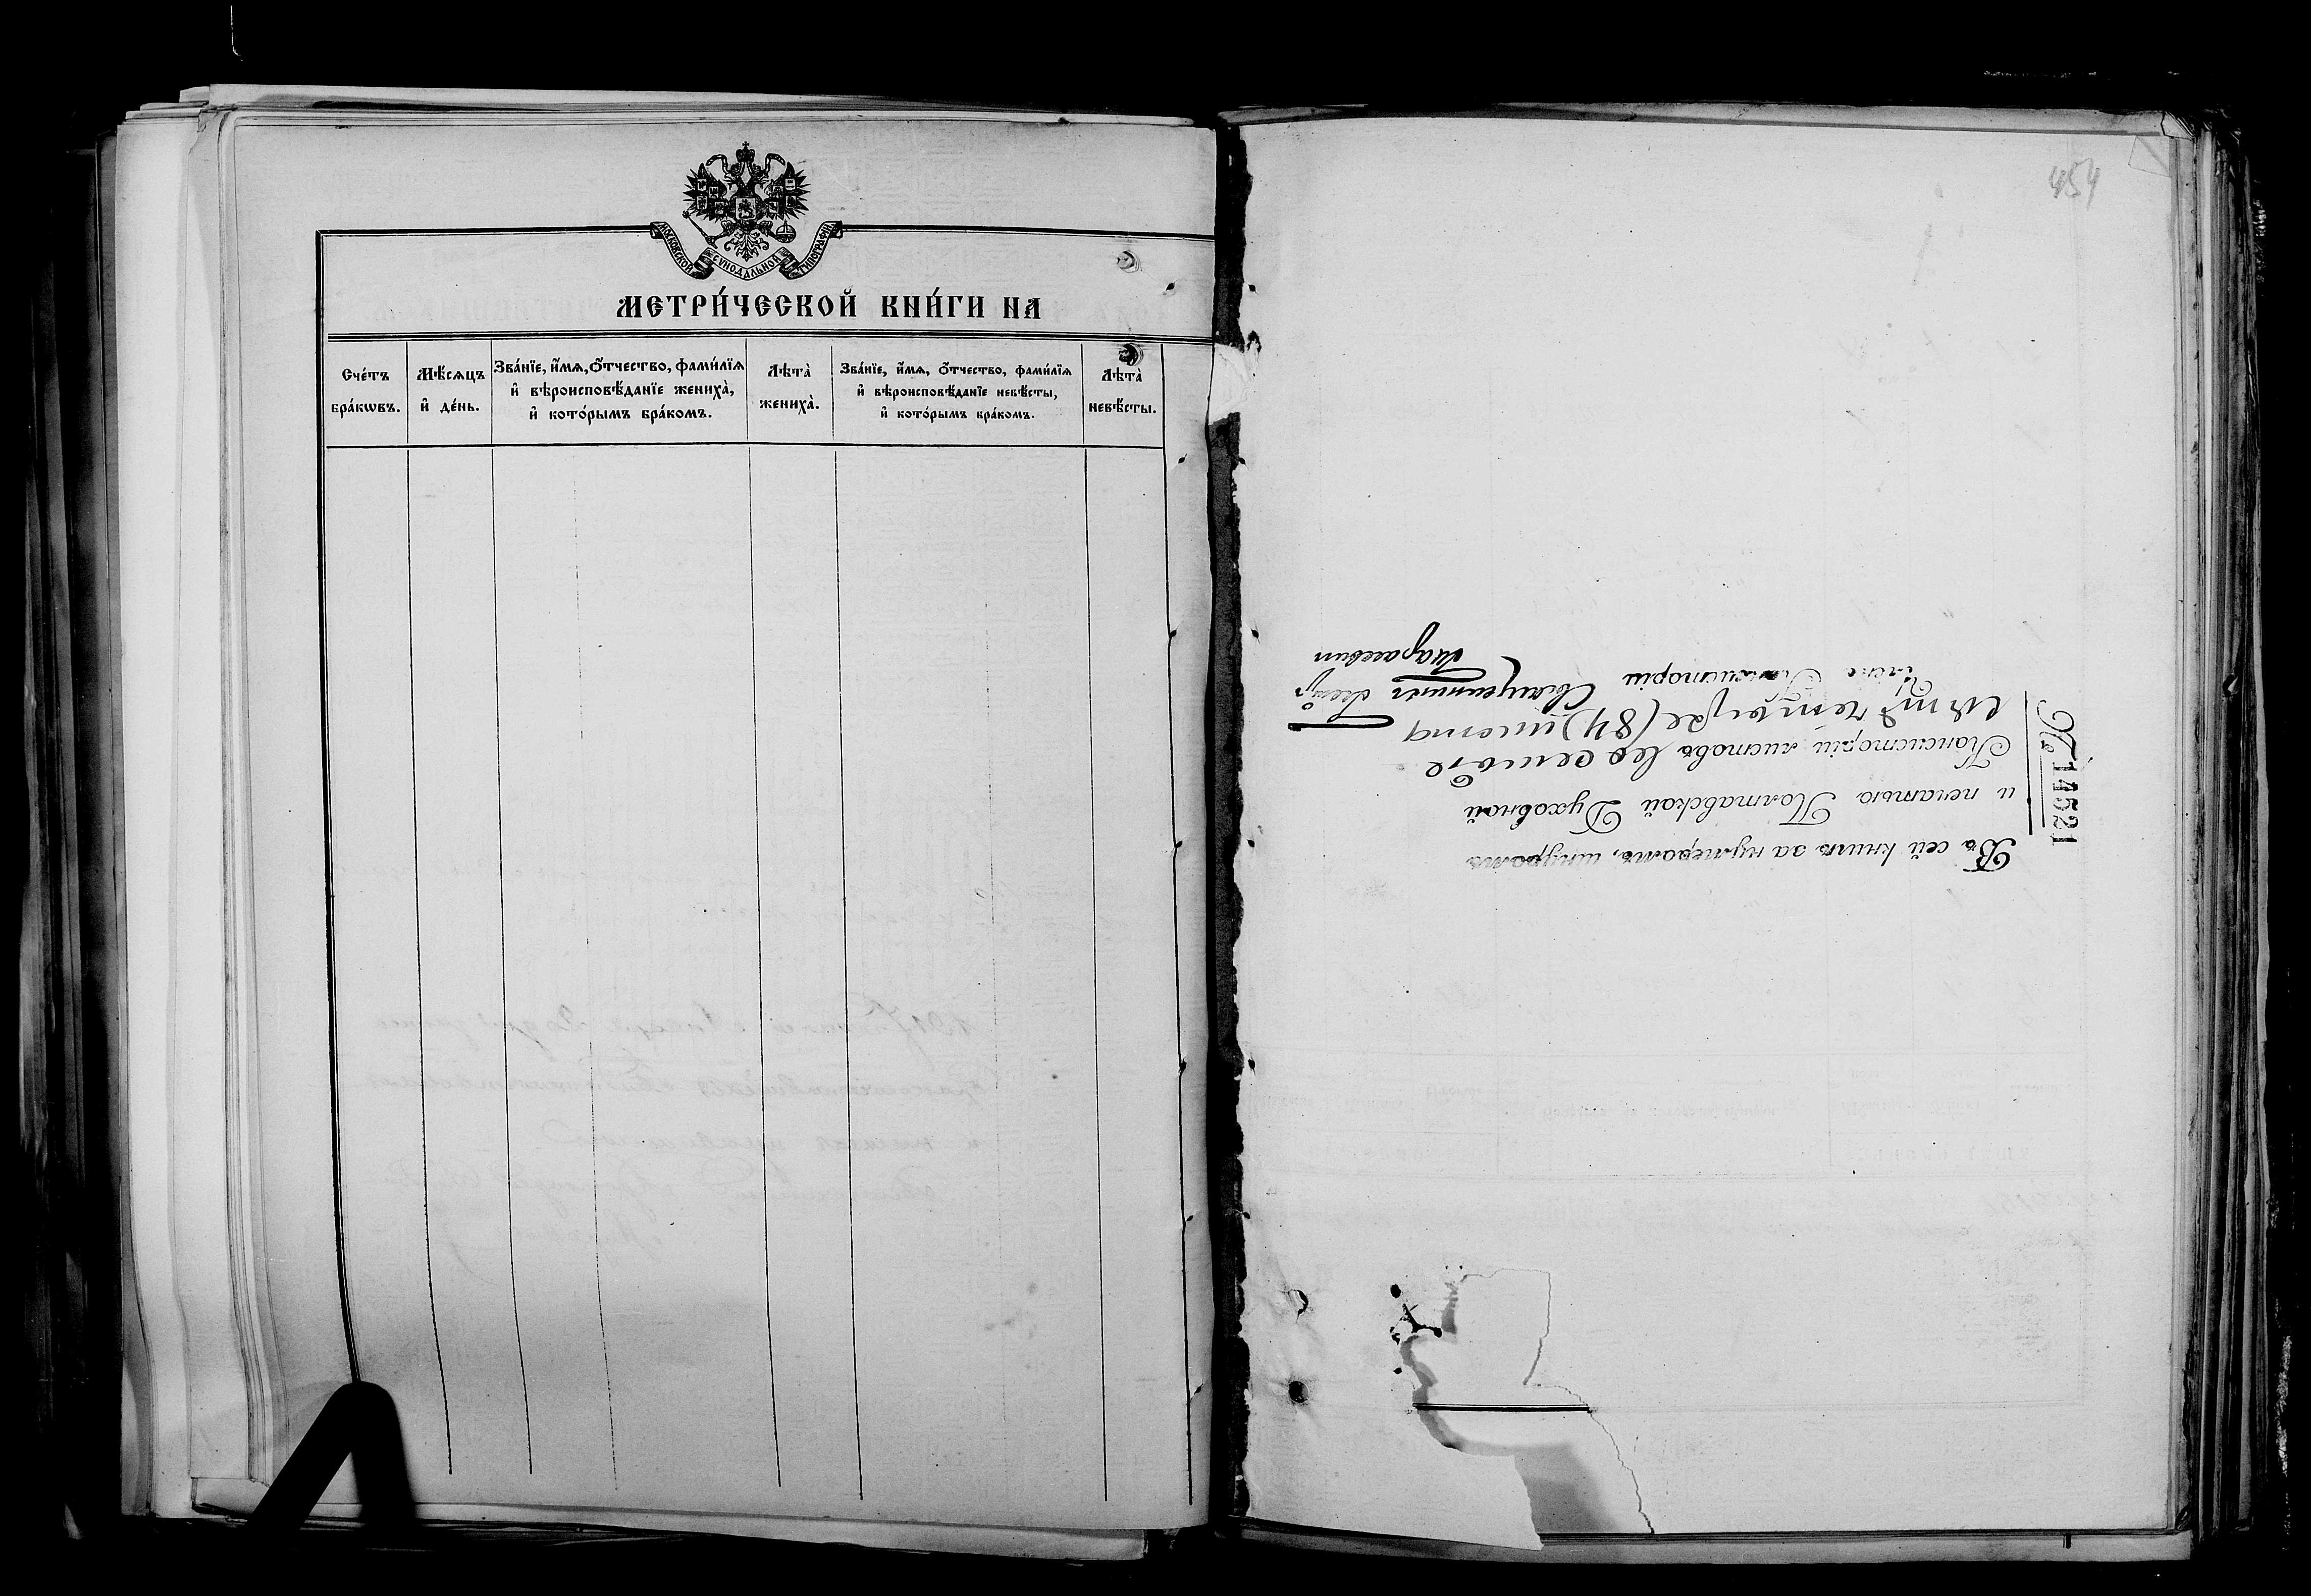 МОСКОВСКОЙ СѴНОДАЛЬНОЙ ТИПОГРАФІИ
МЕТРИ́ЧЕСКОЙ КНИ́ГИ НА
Сче́тъ бра́кѡвъ.
Мѣ́сѧцъ и҆ де́нь.
Зва́нїе, и҆́мѧ, ѻ҆́тчество, фами́лїѧ
и҆ вѣроисповѣ́данїе жениха̀,
и҆ кото́рымъ бра́комъ.
Лѣта̀ жениха̀.
Зва́нїе, и҆́мѧ, ѻ҆́тчество, фами́лїѧ
и҆ вѣроисповѣ́данїе невѣ́сты,
и҆ кото́рымъ бра́комъ.
Лѣта̀ невѣ́сты.
454
№ 14521
Въ сей книгѣ за нумеромъ, шнуромъ
и печатью Полтавской Духовной
Консисторіи листовъ восемьде
сятъ четыре (84) листа
Членъ Консисторіи Священникъ